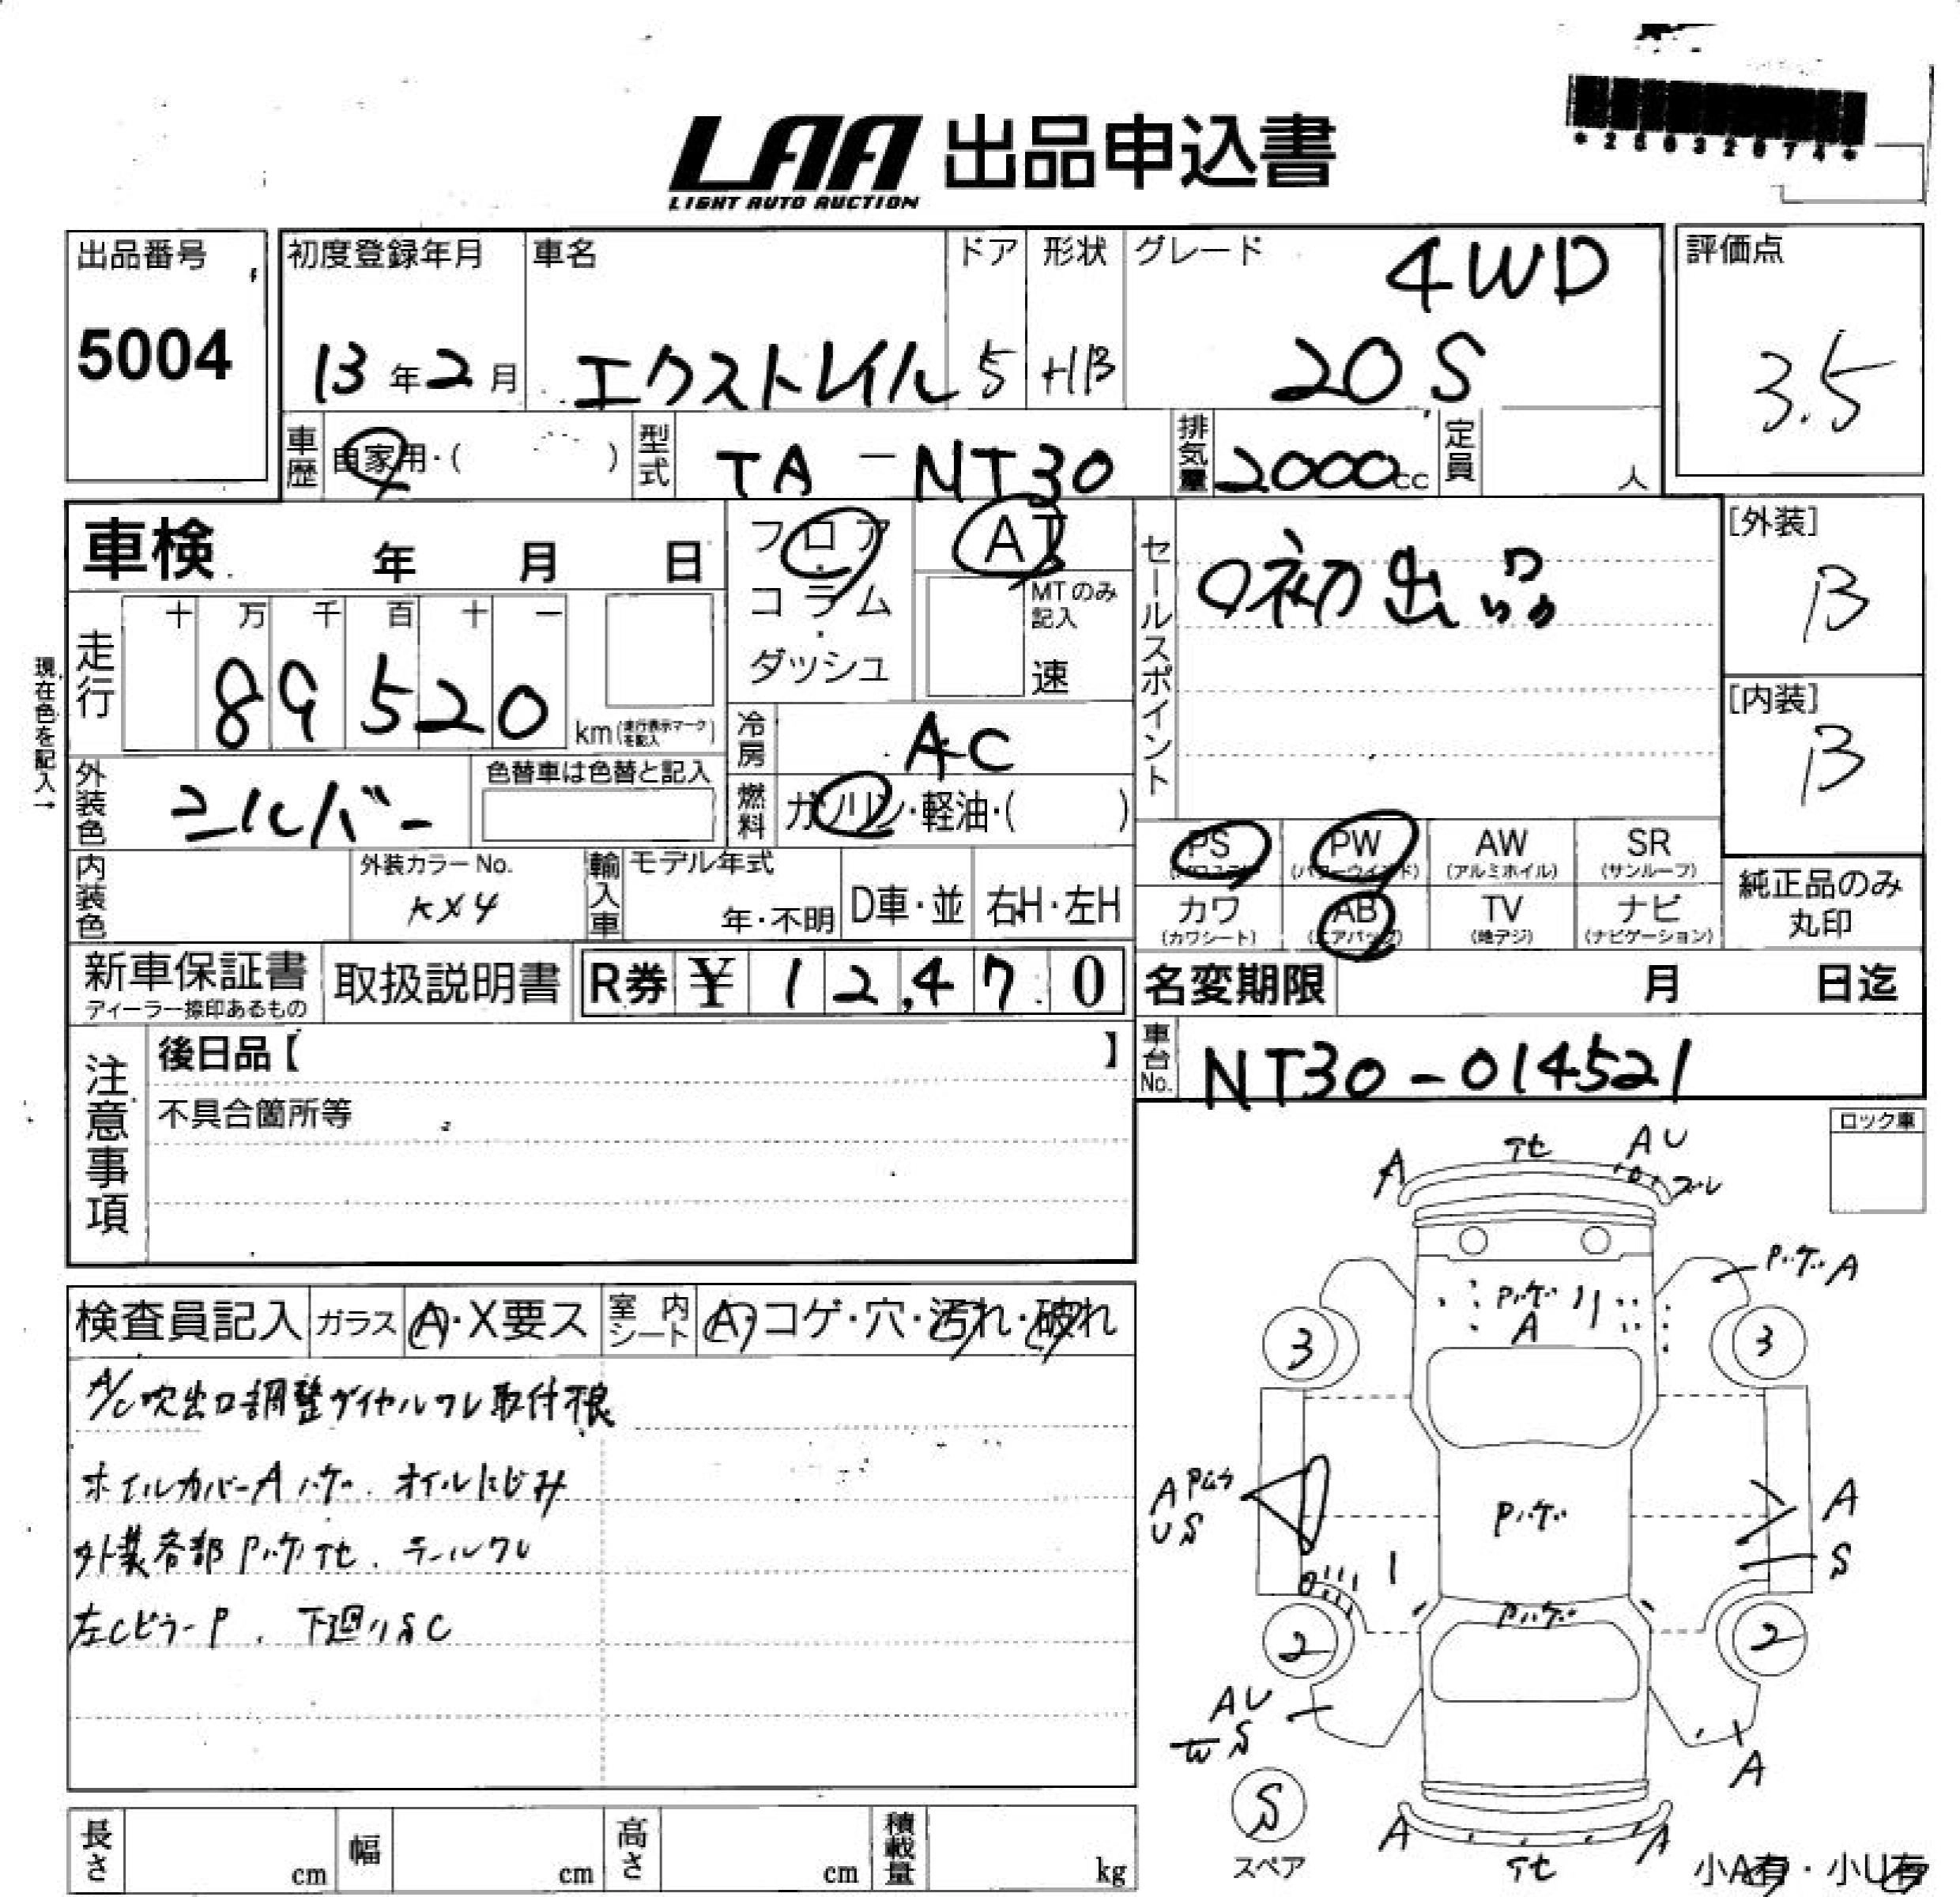 *25032874*
LAA 出品申込書
LIGHT AUTO AUCTION
出品番号
5004
初度登録年月
13年2月
車名
エクストレイル
ドア
5
形状
HB
グレード
4WD
20S
評価点
3.5
車歴
自家用・( )
型式
TA-NT30
排気量
2000cc
定員
人
車検 年 月 日
フロア
・
コラム
・
ダッシュ
AT
MTのみ
記入
速
セールスポイント
○初出品
[外装]
B
[内装]
B
現在色を記入→
走行
十 万 千 百 十 一
89520
km(走行表示マークを記入)
冷房
AC
外装色
シルバー
色替車は色替と記入
燃料
ガソリン・軽油・( )
PS
PW
(パワーウインド)
AW
(アルミホイル)
SR
(サンルーフ)
カワ
(カワシート)
AB
(エアバッグ)
TV
(地デジ)
ナビ
(ナビゲーション)
純正品のみ
丸印
内装色
外装カラーNo.
KX4
輸入車
モデル年式
年・不明
D車・並
右H・左H
新車保証書
ディーラー捺印あるもの
取扱説明書
R券 ¥ 12,470
名変期限 月 日迄
車台No.
NT30-014521
注意事項
後日品【 】
不具合箇所等
ロック車
検査員記入
ガラス
A・X要ス
室内シート
A・コゲ・穴・汚れ・破れ
A/C吹出口調整ダイヤルワレ取付不良
ホイルカバーAハゲ. オイルにじみ
外装各部Pハゲアセ. テールワレ
左CピラーP. 下廻りSC
A アセ AU
ズレ
Pハゲ A
Pハゲ
A
3 3
A Pムラ
U S
Pハゲ
A
S
Pハゲ
2 2
AU
S
A
S
スペア
A アセ A
小A有・小U有
長さ cm
幅 cm
高さ cm
積載量 kg